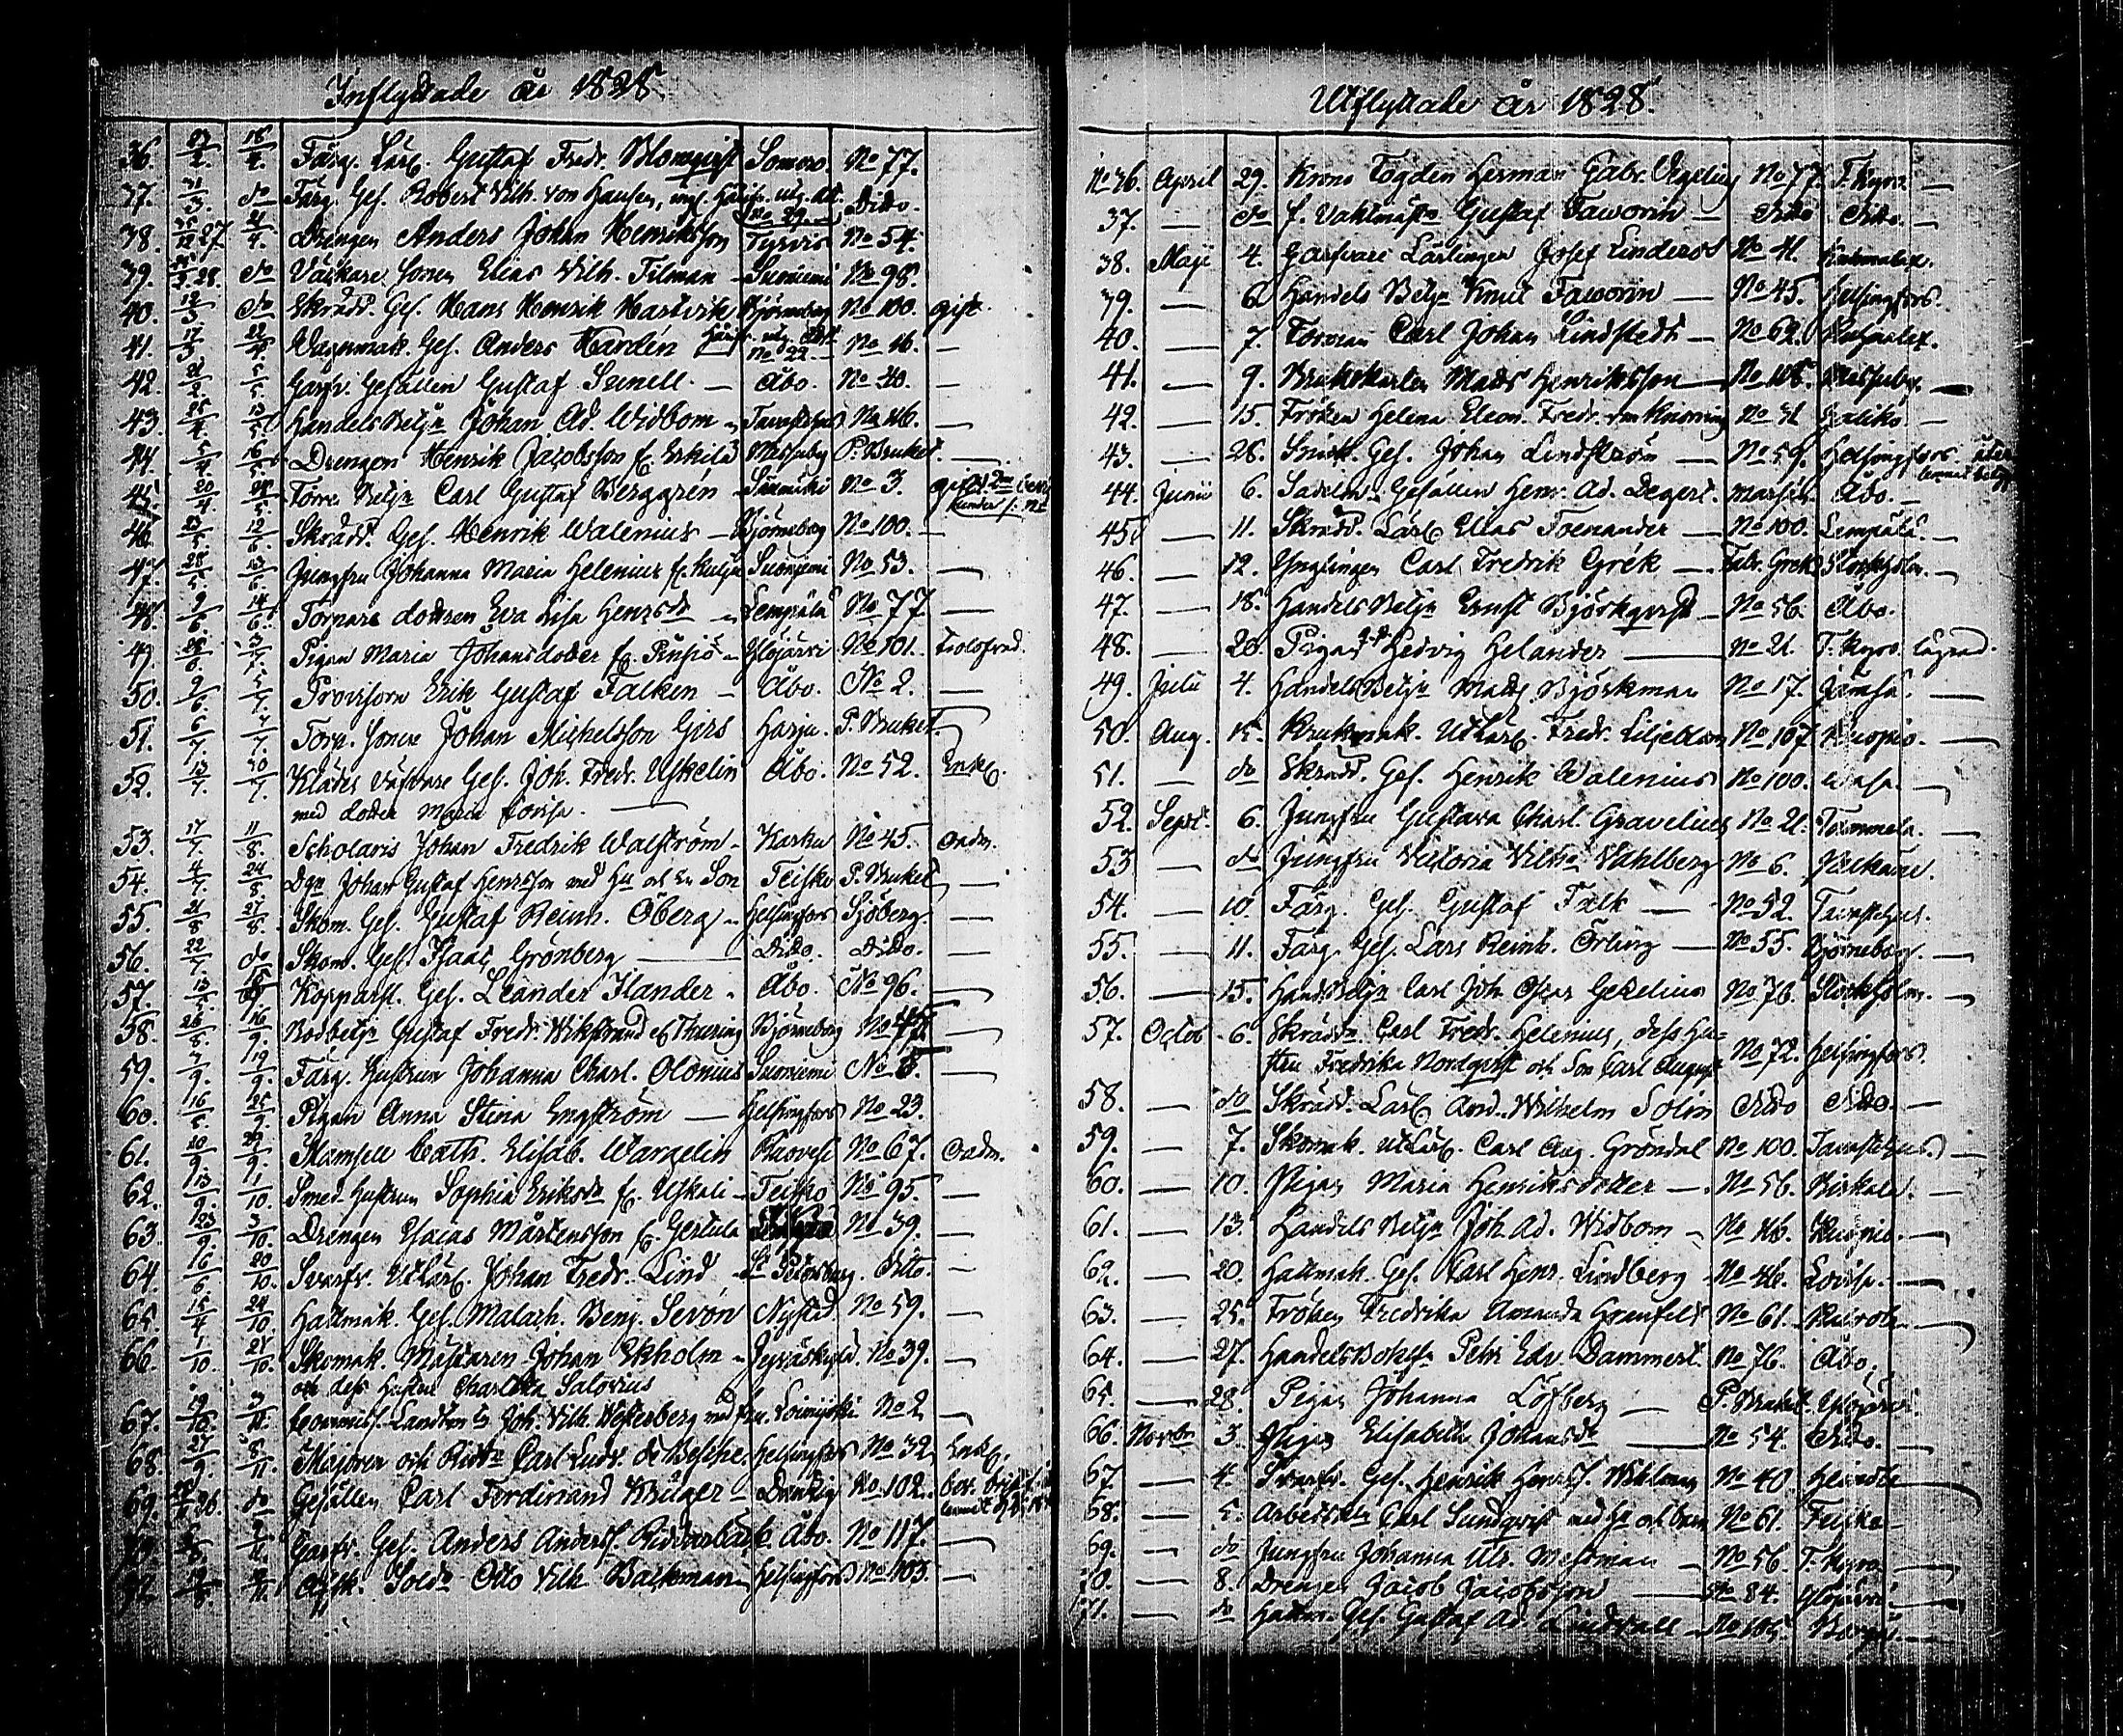 Inflyttade år 1828.
36. 27/2. 18/4. Färg. Lärl. Gustaf Fredr. Blomqvist Somero. No 77.
37. 31/3. do Färg. Ges. Robert Vilh. von Hausen, No 29. Dito.
38. 27 21/4. Drengen Anders Johan Henriksson Tyrvis No 54.
39. 28. do Väskare Sonen Elias Vilh. Tilman Suoniemi No 98.
40. 12/3 do Skrädd. Ges. Hans Henrik Hartvik Björneborg No 100. gift.
41. 17/3 22/4. Vagnmak. Ges. Anders Hardin No 22. No 16. —
42. 21/2. 5/5. Garfv. Gesällen Gustaf Sunell. — Åbo. No 40. —
43. 25/4. 13/5. Handels Betj. Johan Ad. Widbom Tavastehus No 46. —
44. 5/4. 16/5. Drengen Henrik Jacobsson fr. Erkilä Messuby P. Bruket. —
45. 20/4 28/5. Carl Gustaf Berggrén Suoniemi No 3.
46. 23/5. 12/6. Skrädd. Ges. Henrik Walenius — Björneborg No 100. —
47. 28/5 13/6. Jungfru Johanna Maria Helenius fr. Kulju Suoniemi No 53. —
48. 9/6 14/6. Torpare dottren Eva Lisa Henrsdr Lempälä No 77. —
49. 28/6. 3/7. Pigan Maria Johansdotter fr. Pinsiö Ylöjärvi No 101.
50. 9/6. 5/7. Provisorn Erik Gustaf Falken — Åbo. No 2. —
51. 6/7. 7/7. Torp. Sonen Johan Michelsson Girs Harju. P. Bruket.
52. 13/7. 30/7. Klädes väfvare Ges. Joh. Fredr. Uskelin Åbo. No 52. Enkl.
med dotter Maria Lovisa. —
53. 17/7. 11/8. Scholaris Johan Fredrik Walström Karku No 45.
54. 4/7. 24/8. Johan Gustaf Henrsson med Hu och en Son Teisko P. Bruket —
55. 21/8 27/8. Skom. Ges. Gustaf Reinh. Öberg Helsingfors Sjöberg. —
56. 22/7. do Skom. Ges. Isaac Grönberg — Dito. Dito. —
57. 13/5. Kopparsl. Ges. Leander Ilander. Åbo. No 96. —
58. 26/8. 16/9. Bodbetj. Gustaf Fredr. Wikstrand Björneborg —
59. 7/9. 19/9. Färg. Hustrun Johanna Charl. Olonius Suoniemi No 8. —
60. 16/5. 25/9. Pigan Anna Stina Engström — Helsingfors No 23. —
61. 20/9. 29/9. Mamsell Cath. Elisab. Wangelin Ruovesi No 67.
62. 13/9. 1/10. Smed. Hustrun Sophia Eriksdr fr. Uskali Teisko No 95. —
63. 23/9 3/10. Drengen Esaias Mårtensson fr. Gertula No 39. —
64. 16/6 20/10. Svarfv. Utlärl. Johan Fredr. Lind St Petersburg. Dito. —
65. 15/4 24/10 Hattmak. Ges. Malach. Benj. Sevón Nystad No 59. —
66. 1/10. 28/10. Skomak. Mästaren Johan Ekholm No 39. —
och dess Hustru Charlotta Salovius
67. 19/10. 3/11. Joh. Vilh. Westerberg med Hu. Loimijoki No 2 —
68. 27/9. 8/11. Majoren och Ridd. Carl Ludv. de Besche. Helsingfors No 32. Enkl.
69. 26. do Gesällen Carl Ferdinand Krüger — Danzig No 102.
Garfv. Ges. Anders Anderss. Åbo. No 117. —
Afsk. Sold. Otto Vilh. Backman Helsingfors No 103. —
Utflyttade år 1828.
No 36. April 29. Krono Fogden Herman Gabr. No 77. T. Kyro —
37. — do f. Vaktmäst. Gustaf Faworin — Dito Dito. —
38. Maji 4. Garfvare Lärlingen Josef Linderos No 41.
39. — 6. Handels Betj. Knut Faworin — No 45. Helsingfors.
40. — 7. Carl Johan Lindstedt — No 62.
41. — 9. Brukskarlen Mats Henriksson — No 108. —
42. — 15. Fröken Helena Eleon. Fredr. von Knorring No 31 Haliko. —
43. — 28. Smidt. Ges. Johan Lindström — No 59. Helsingfors
44. Junii 6. Sadelm. Gesällen Henr. Ad. Degert. Åbo. —
45. — 11. Skrädd. Lärl. Elias Foenander — No 100. Lempälä. —
46. — 12. Ynglingen Carl Fredrik Grék — Fabr. Grek Stockholm. —
47. — 18. Handels Betj. Ernst Björkqvist — No 56. Åbo.
48. — 28. Pigan Hedvig Helander — No 21. T. Kyro
49. Julii 4. Handels Betj. Mats Björkman No 17. Jämsä. —
50. Aug. 15. Krukmak. Utlärl. Fredr. Liljeblom No 107. Kuopio. —
51. — do Skrädd. Ges. Henrik Walenius No 100. Wasa. —
52. Sept. 6. Jungfru Gustava Charl. Gravelius No 21. Tammela. —
53 — do Jungfru Victoria Vilha Vahlberg No 6.
54. — 10. Färg. Ges. Gustaf Falk — No 52. Tavastehus.
55. — 11. Färg. Ges. Lars Reinh. Örling — No 55. Björneborg. —
56. — 15. Handelsbetj. Carl Joh. Oscar Gezelius No 76. Stockholm. —
57. Octob. 6. Skrädd. Carl Fredr. Helenius, dess Hu-
stru Fredrika Nordqvist och Son Carl August No 72. Helsingfors
58. — do Skrädd. Lärl. And. Wilhelm Solin Dito Dito. —
59. — 7. Skomak. Utlärl. Carl Aug. Gröndal No 100. Tavastehus. —
60. — 10. Pigan Maria Henriksdotter — No 56. Birkala. —
61. — 13. Handels Betj. Joh. Ad. Widbom — No 46. Kuopio. —
62. — 20. Hattmak. Ges. Carl Henr. Lindberg No 46. Lovisa. —
63. — 25. Fröken Fredrika Amanda Granfelt No 61. —
64. — 27. Handels Bokh. Petr. Edv. Dammert. No 76. Åbo.
65. — 28. Pigan Johanna Löfberg — P. Bruket. Ylöjärvi.
66. Novbr 3. Pigan Elisabeth Johansdr — No 54. Dito. —
67 — 4. Svarfv. Ges. Henrik Henrss. Wihlman No 40 —
68. — 5. Arbetskn. Carl Sundqvist med Hu och barn No 61. Teisko —
69. — do Jungfru Johanna Ulr. Westman — No 56. T. Kyro —
70. — 8. Drengen Jacob Jacobsson — No 84. Ylöjärvi —
71. — do Hattm. Ges. Gustaf Ad. Lindvall — No 105. —